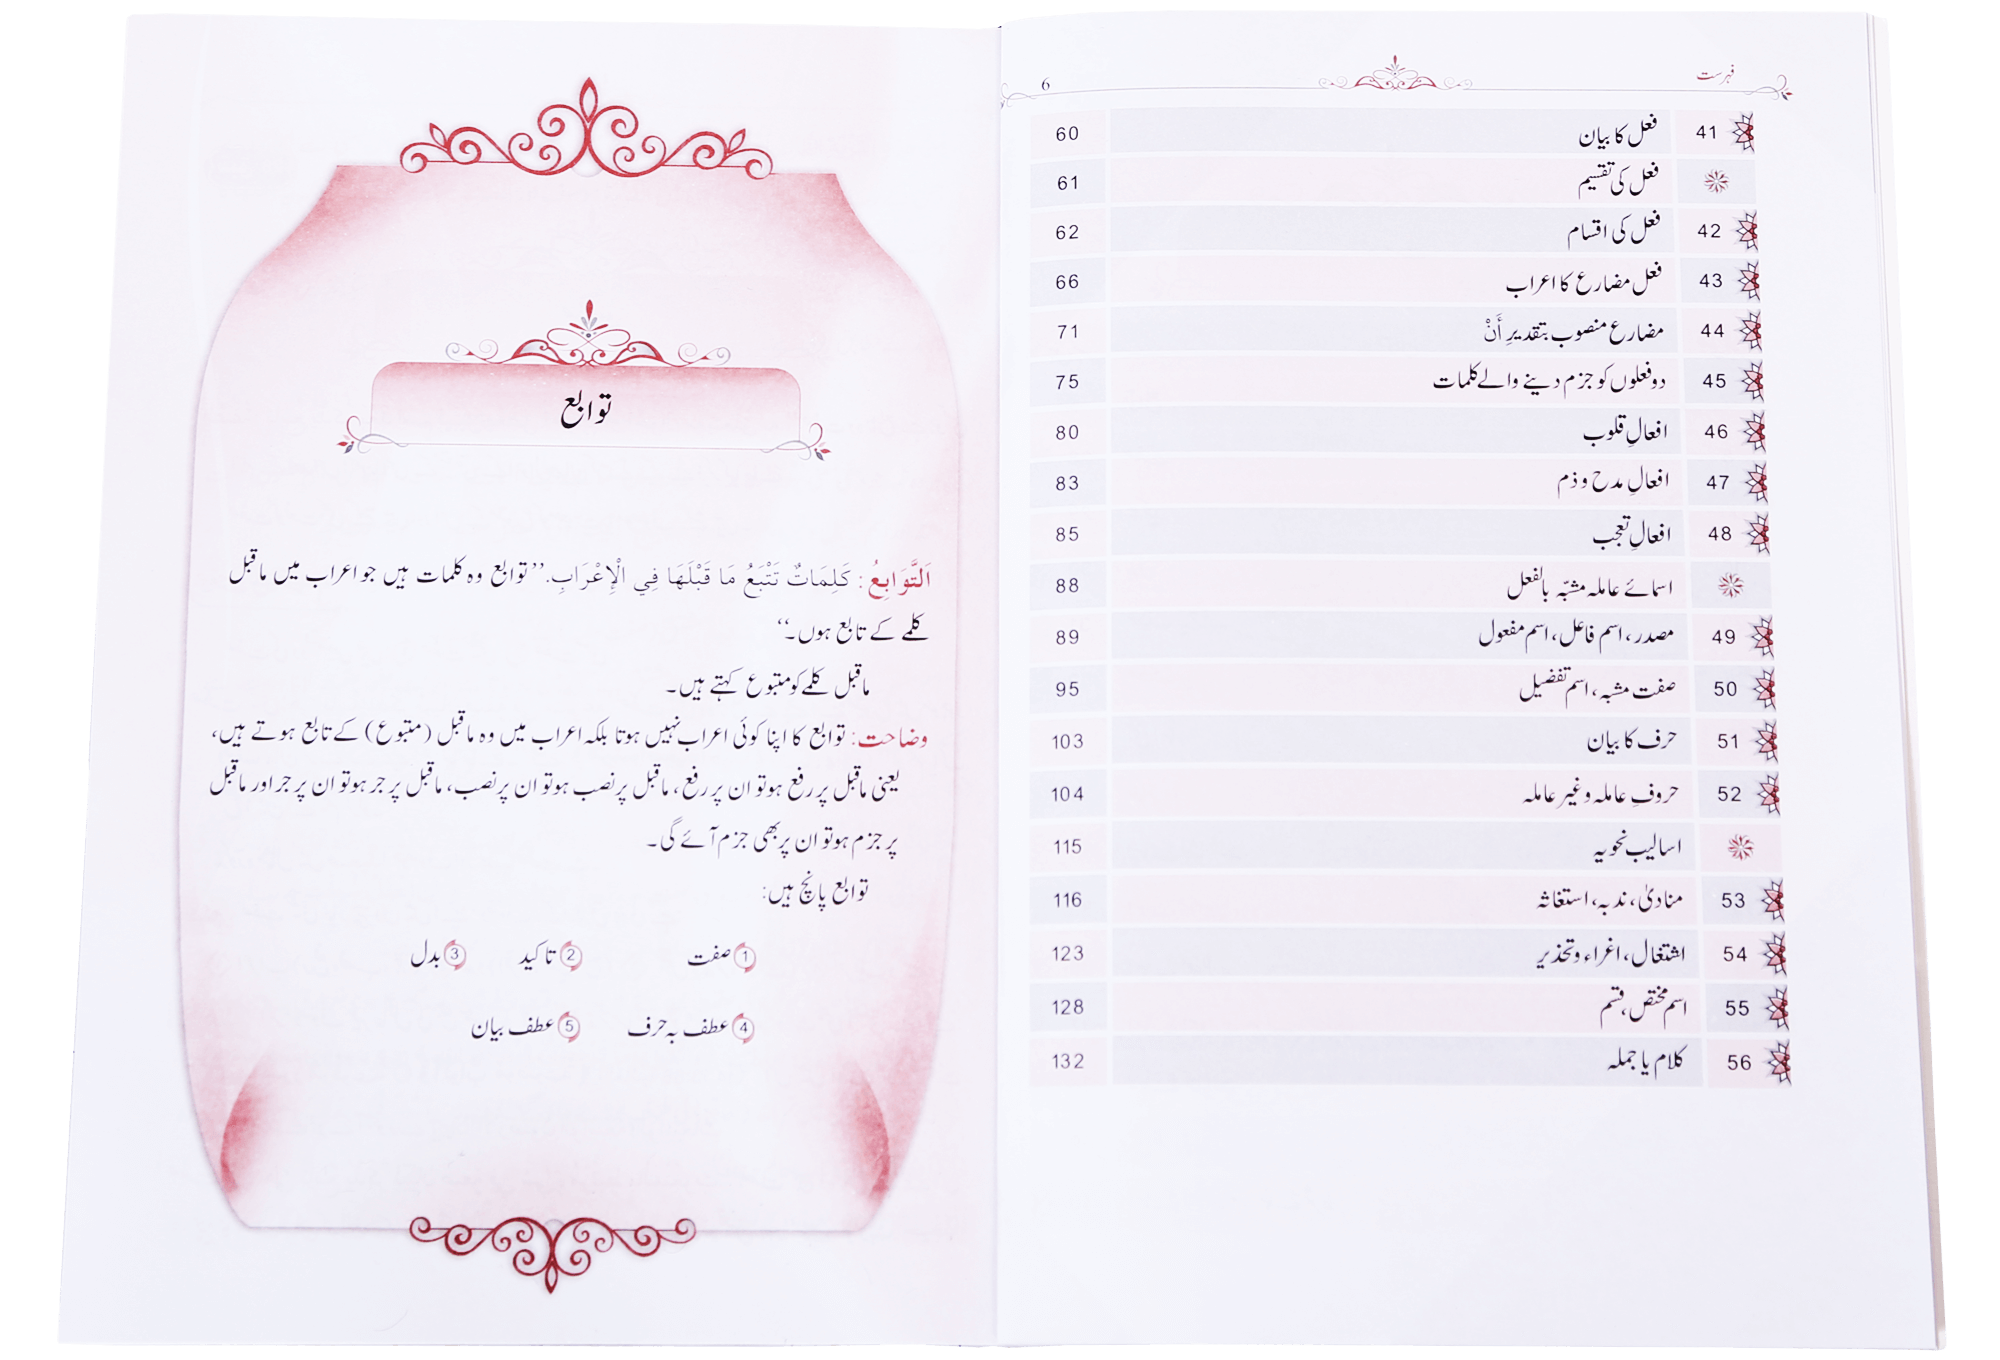 فہرست 6
41 فعل کا بیان 60
فعل کی تقسیم 61
42 فعل کی اقسام 62
43 فعل مضارع کا اعراب 66
44 مضارع منصوب بتقدیرِ أَنْ 71
45 دو فعلوں کو جزم دینے والے کلمات 75
46 افعالِ قلوب 80
47 افعالِ مدح و ذم 83
48 افعالِ تعجب 85
اسمائے عاملہ مشبّہ بالفعل 88
49 مصدر، اسم فاعل، اسم مفعول 89
50 صفت مشبہ، اسم تفضیل 95
51 حرف کا بیان 103
52 حروفِ عاملہ و غیر عاملہ 104
اسالیب نحویہ 115
53 منادیٰ، ندبہ، استغاثہ 116
54 اشتغال، اغراء و تحذیر 123
55 اسم مختص، قسم 128
56 کلام یا جملہ 132
توابع
اَلتَّوَابِعُ: كَلِمَاتٌ تَتْبَعُ مَا قَبْلَهَا فِي الْإِعْرَابِ. ’’توابع وہ کلمات ہیں جو اعراب میں ماقبل
کلمے کے تابع ہوں۔‘‘
ماقبل کلمے کو متبوع کہتے ہیں۔
وضاحت: توابع کا اپنا کوئی اعراب نہیں ہوتا بلکہ اعراب میں وہ ماقبل (متبوع) کے تابع ہوتے ہیں،
یعنی ماقبل پر رفع ہو تو ان پر رفع، ماقبل پر نصب ہو تو ان پر نصب، ماقبل پر جر ہو تو ان پر جر اور ماقبل
پر جزم ہو تو ان پر بھی جزم آئے گی۔
توابع پانچ ہیں:
1 صفت 2 تاکید 3 بدل
4 عطف بہ حرف 5 عطف بیان